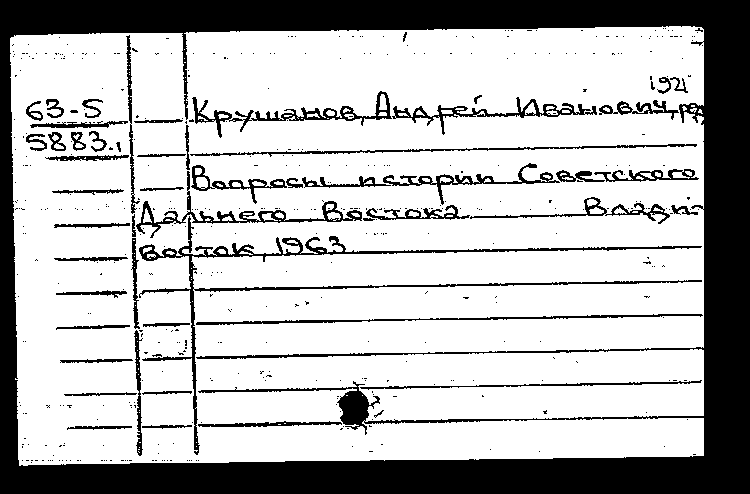 1921
63-5 Крушанов, Андрей Иванович, ред
5883.1
Вопросы истории Советского
Дальнего Востока Влади-
восток, 1963